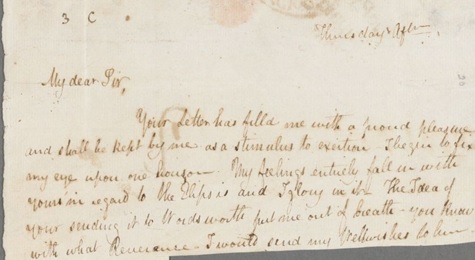 3 C
Thursday Aftn
My dear Sir,
Your Letter has filld me with a proud pleasure
and shall be kept by me as a stimulus to exertion I begin to fix
my eye upon one horison. My feelings entirely fall in with
yours in regard to the Elipsis and I glory in it. The Idea of
your sending it to Wordsworth put me out of breath - you know
with what Reverence - I would send my Wellwishes to him